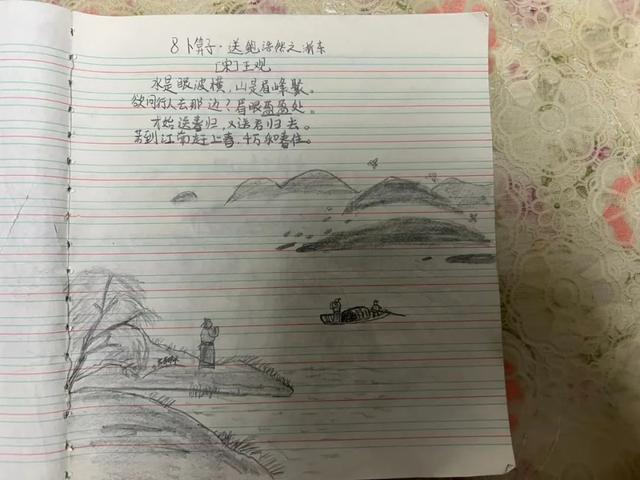 8 卜算子·送鲍浩然之浙东
[宋]王观
水是眼波横,山是眉峰聚。
欲问行人去那边?眉眼盈盈处。
才始送春归,又送君归去。
若到江南赶上春,千万和春住。